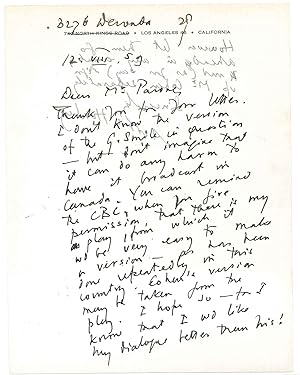 3276 Deronda Dr
740 NORTH KINGS ROAD • LOS ANGELES 46 • CALIFORNIA
12. viii. 59
Dear Mr Parsons,
Thank you for your letter.
I don't know the version
of the G. Smile in question
— but don't imagine that
it can do any harm to
have it broadcast in
Canada. You can remind
the CBC, when you give
permission, that there is my
play, from which it
wd be very easy to make
a version — as has been
done repeatedly in this
country. The version
may be taken from the
play. I hope so — for I
know that I wd like
my dialogue better than his!